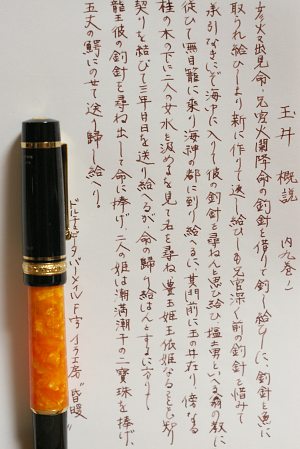 玉井 概説 内九巻ノ一
彦火々出見命、兄宮火闌降命の釣針を借りて釣し給ひしに、釣針を魚に
取られ給ひしより新に作りて返し給ひしも兄宮深く前の釣針を惜みて
承引なき
海中に入りて彼の釣針を尋ねんと思ひ給ひ塩土男といへる翁の教に
従ひて無目籠に乗り海神の都に到り給へるに其門前に玉の井在り、傍なる
桂の木の下に二人の女水を汲めるを見て名を尋ね豊玉姫玉依姫なることを知り
契りを結びて三年の日を送り給へるが、命の帰り給はんとするに
龍王彼の釣針を尋ね出して命に捧げ、二人の姫は潮満潮干の二宝珠を捧げ、
五丈の鰐にのせて送り帰し給へり。
F字
"昏暖"